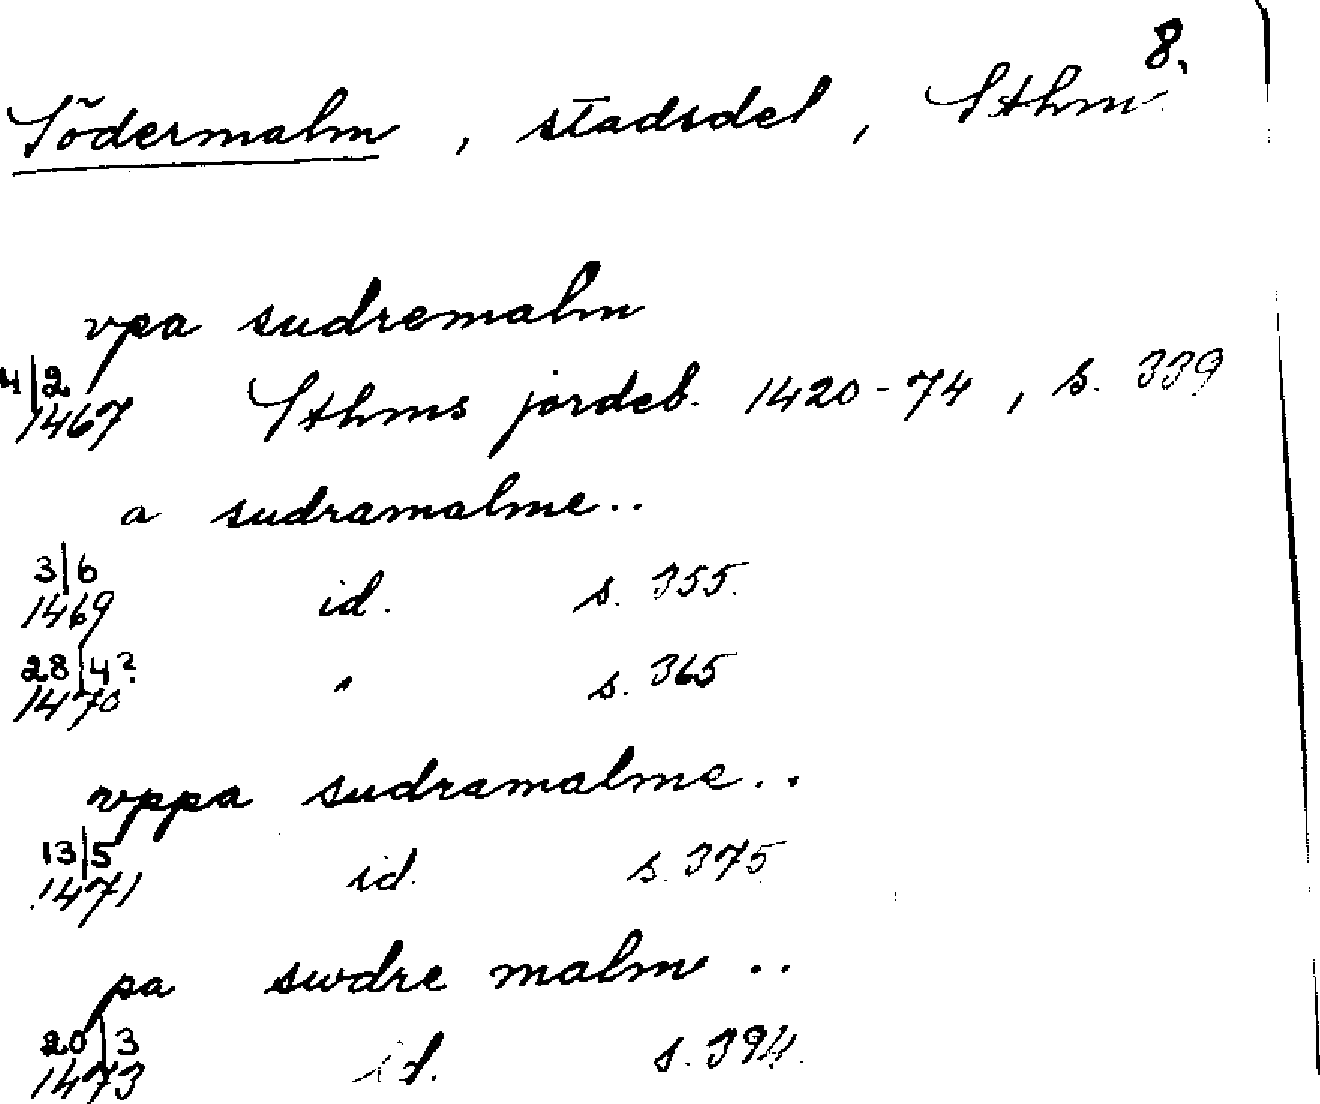 8.
Södermalm, stadsdel, Sthm
vpa sudremalm
4|2
1467 Sthms jordeb. 1420-74, s. 339
a sudramalme..
3|6
1469 id. s. 355.
28|4?
1470 " s. 365
vppa sudramalme..
13|5
1471 id. s. 375
pa swdre malm ..
20|3
1473 id. s. 394.